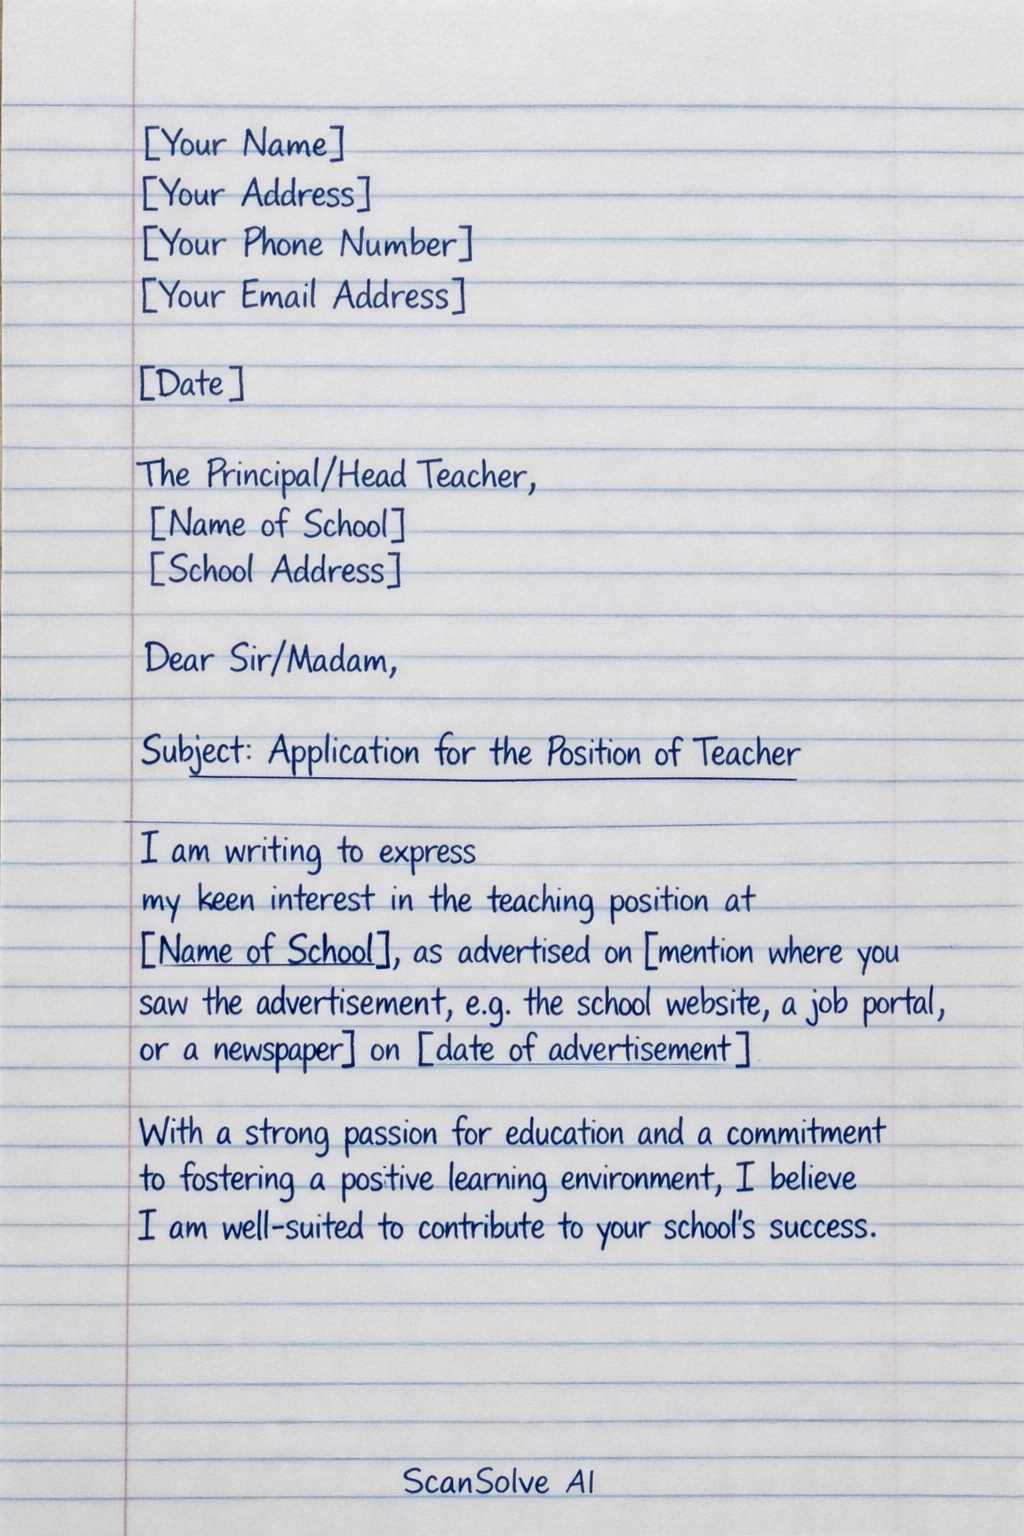 [Your Name]
[Your Address]
[Your Phone Number]
[Your Email Address]
[Date]
The Principal/Head Teacher,
[Name of School]
[School Address]
Dear Sir/Madam,
Subject: Application for the Position of Teacher
I am writing to express
my keen interest in the teaching position at
[Name of School], as advertised on [mention where you
saw the advertisement, e.g. the school website, a job portal,
or a newspaper] on [date of advertisement]
With a strong passion for education and a commitment
to fostering a positive learning environment, I believe
I am well-suited to contribute to your school's success.
ScanSolve AI